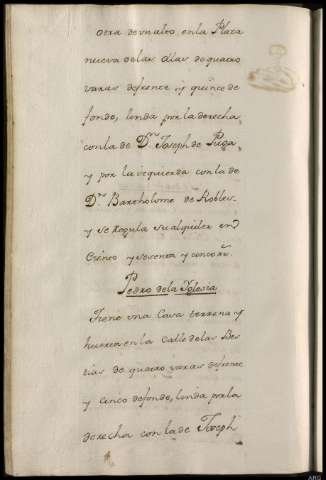 otra de un alto, en la Plaza
nueva de las Ollas de quatro
varas de frente y quince de
fondo, linda por la derecha
con la de Dn. Joseph de Puga
y por la izquierda con la de
Dn. Bartholome de Robles
y se regula su alquiler en
Ciento y sesenta y cinco rs.
Pedro de la Iglesia
Tiene una Casa terrena y
huerta en la Calle de las Bes
tias de quatro varas de frente
y cinco de fondo, linda por la
derecha con la de Joseph